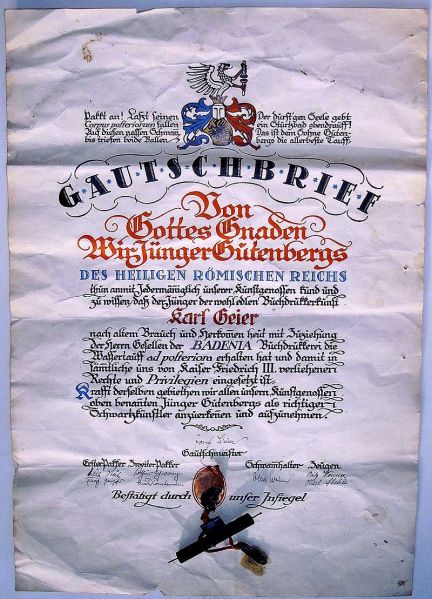 Packt an! Laßt seinen
Corpus posteriorum fallen
Auf diesen nassen Schwamm,
bis triefen beide Ballen.
Der dürst'gen Seele gebt
ein Sturtzbad obendrauff!
Das ist dem Sohne Guten-
bergs die allerbeste Tauff.
GAUTSCHBRIEF
Von
Gottes Gnaden
Wir Jünger Gutenbergs
DES HEILIGEN RÖMISCHEN REICHS
thun anmit Jedermäniglich unserer Kunstgenossen kund und
zu wissen, daß der Jünger der wohledlen Buchdruckerkunst
Karl Geier
nach altem Brauch und Herkomen heut mit Zuziehung
der Herrn Gesellen der BADENIA Buchdruckerei die
Wassertauff ad posteriora erhalten hat und damit in
sämtliche uns von Kaiser Friedrich III. verliehenen
Rechte und Privilegien eingesetzt ist.
Krafft derselben gebiethen wir allen unsern Kunstgenossen
oben benanten Jünger Gutenbergs als richtigen
Schwartzkünstler anzuerkenen und aufzunehmen.
Gautschmeister
Erster Packer Zweiter Packer Schwamhalter Zeugen
Bestätigt durch unser Insiegel